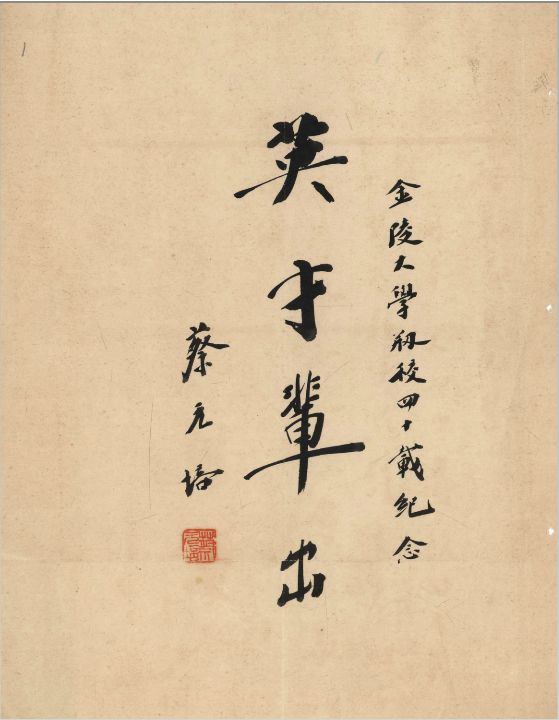 金陵大學刱校四十載紀念
英才輩出
蔡元培